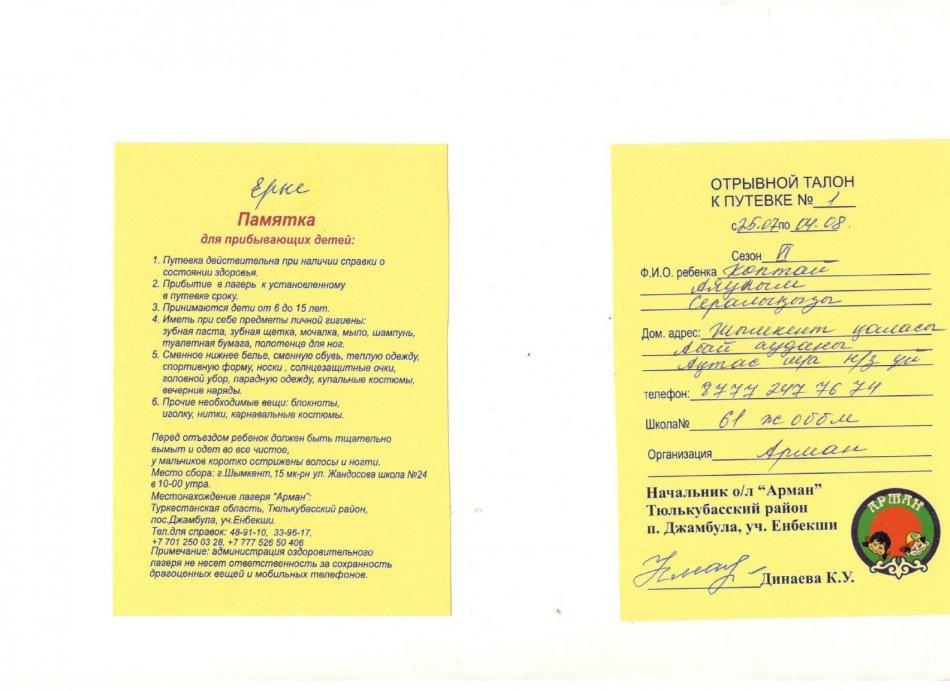 Ерке
Памятка
для прибывающих детей:
1. Путевка действительна при наличии справки о
состоянии здоровья.
2. Прибытие в лагерь к установленному
в путевке сроку.
3. Принимаются дети от 6 до 15 лет.
4. Иметь при себе предметы личной гигиены:
зубная паста, зубная щетка, мочалка, мыло, шампунь,
туалетная бумага, полотенце для ног.
5. Сменное нижнее белье, сменную обувь, теплую одежду,
спортивную форму, носки , солнцезащитные очки,
головной убор, парадную одежду, купальные костюмы,
вечерние наряды.
6. Прочие необходимые вещи: блокноты,
иголку, нитки, карнавальные костюмы.
Перед отъездом ребенок должен быть тщательно
вымыт и одет во все чистое,
у мальчиков коротко острижены волосы и ногти.
Место сбора: г.Шымкент, 15 мк-рн ул. Жандосова школа №24
в 10-00 утра.
Местонахождение лагеря "Арман":
Туркестанская область, Тюлькубасский район,
пос.Джамбула, уч.Енбекши.
Тел.для справок: 48-91-10, 33-96-17,
+7 701 250 03 28, +7 777 526 50 406
Примечание: администрация оздоровительного
лагеря не несет ответственность за сохранность
драгоценных вещей и мобильных телефонов.
ОТРЫВНОЙ ТАЛОН
К ПУТЕВКЕ № 1
с 25.07 по 04.08.
Сезон VI
Ф.И.О. ребенка Коптай
Аяулым
Сералықызы
Дом. адрес: Шымкент қаласы
Абай ауданы
Ақтас м/а н/з үй
телефон: 8777 247 76 74
Школа№ 61 жоббм
Организация Арман
Начальник о/л "Арман"
Тюлькубасский район
п. Джамбула, уч. Енбекши
Динаева К.У.
АРМАН